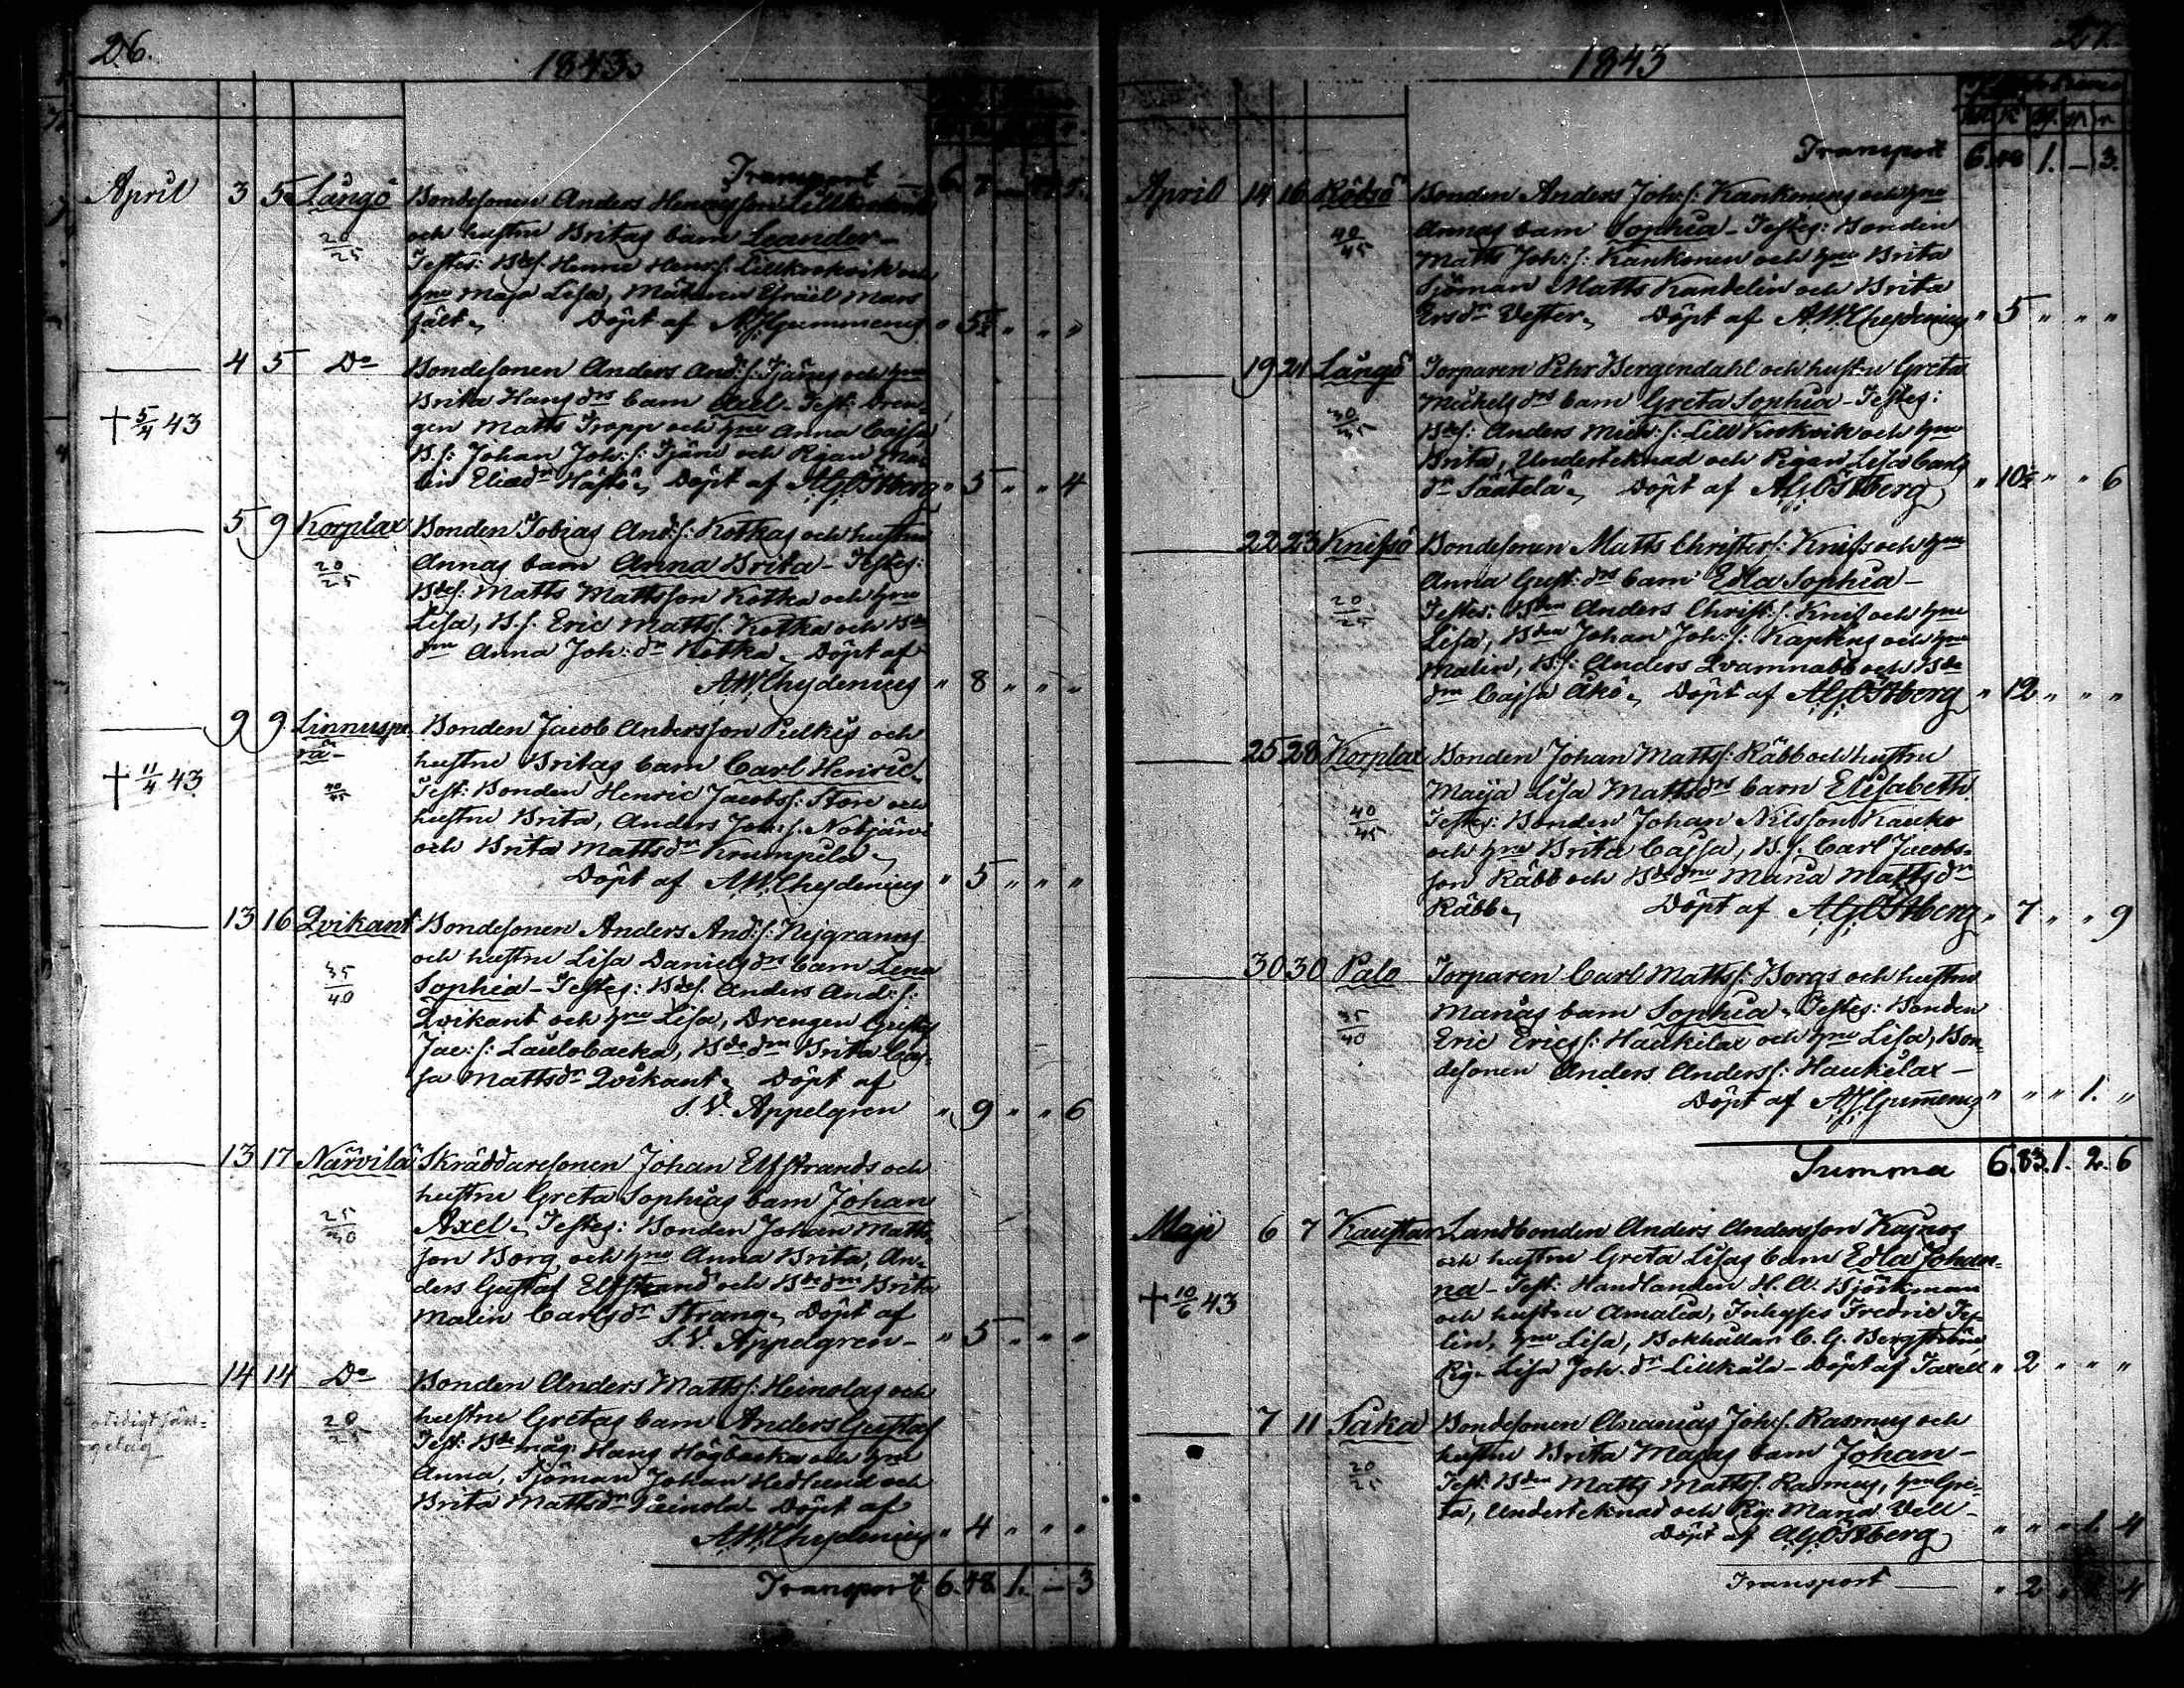 26.
1843.
Transport
April 3 5 Långö Bondesonen Anders Henricsson
20/25 och hustru Britas barn Leander -
Testes: Bdes. Henric Henr:s: Lillkorkvik och
hru Maja Lisa, Målaren Esraël Mars
fält. Döpt af A.J. Gummerus " 5½ " " "
4 5 Do Bondesonen Anders And:s: Tjäru och hru
Brita Hans drs barn Axel - Test: Dren-
† 5/4 43 gen Matts Tropp och hru Anna Cajsa
B.s: Johan Joh:s: Tjäru och Pigan Ma-
lin Eliædr Hästö, Döpt af A.G. Östberg " 5 " " 4
5 9 Korplax Bonden Tobias And:s: Kotkas och hustru
20/25 Annas barn Anna Brita - Testes:
Bdes. Matts Mattsson Kotka och hru
Lisa, B.s. Eric Mattss: Kotka och Bde
dnn Anna Joh:dr Kotka - Döpt af
A.W. Chydenius " 8 " " "
9 9 Linnuspe- Bonden Jacob Andersson Pulkis och
rä - hustru Britas barn Carl Henric
† 11/4 43 40/45 Test: Bonden Henric Jacobss: Store och
hustru Brita, Anders Joh:s: Notjärvi
och Brita Mattsdr Krumpula
Döpt af A.W. Chydenius " 5 " " "
13 16 Qvikant Bondesonen Anders And:s: Nygranns
och hustru Lisa Daniels drs barn Lena
35/40 Sophia - Testes: Bdes. Anders And:s:
Qvikant och hru Lisa, Drengen Gustaf
Jac:s: Laulobacka, Bdednn Brita Caj-
sa Mattsdr Qvikant. Döpt af
S.V. Appelgren " 9 " " 6
13 17 Närvilä Skräddaresonen Johan Elfstrands och
hustru Greta Sophias barn Johan
25/30 Axel - Testes: Bonden Johan Matts-
son Borg och hru Anna Brita, An-
ders Gustaf Elfstrand och Bdednn Brita
Malin Carlsdr Strang. Döpt af
S.V. Appelgren - " 5 " " "
14 14 Do Bonden Anders Mattss: Heinolas och
20 hustru Gretas barn Anders Gustaf
Test: Bdemåg Hans Högbacka och hru
Anna, Sjöman Johan Hedlund och
Brita Mattsdr Heinola - Döpt af
A.W. Chydenius " 4 " " "
Transport 6.48. 1. - 3
1843
Transport 6.48 1. - 3.
April 14 16 Rödsö Bonden Anders Joh:s: Kankonens och hru
40/45 Annas barn Sophia - Testes: Bonden
Matts Joh:s: Kankonen och hru Brita
Sjöman Matts Kandelin och Brita
Ersdr Vester. Döpt af A.W. Chydenius " 5 " " "
19 21 Långö Torparen Pehr Bergendahl och hustru Greta
Michels drs barn Greta Sophia - Testes:
30/35 Bdes: Anders Mich:s: Lill Korkvik och hru
Brita, Undertecknad och Pigan Lisa Carls
dr Säätelä. Döpt af A.G. Östberg " 10½ " " 6
22 23 Knifsö Bondesonen Matts Christers: Knifs och hru
Anna Gust:drs barn Edla Sophia -
20/25 Testes: Bden Anders Christ:s: Knif och hru
Lisa, Bden Johan Joh:s: Kapkus och hru
Malin, B.s: Anders Qvarnnabb och Bde
dnn Cajsa Åkö. Döpt af A.G. Östberg " 12 " " "
25 28 Korplax Bonden Johan Mattss: Räbb och hustru
Maija Lisa Mattsdrs barn Elisabeth
40/45 Testes: Bonden Johan Nilsson Kauko
och hru Brita Cajsa, B.s. Carl Jacobs-
son Räbb och Bdednn Maria Mattsdr
Räbb. Döpt af A.G. Östberg " 7 " " 9
30 30 Palo Torparen Carl Mattss: Borgs och hustru
35/40 Marias barn Sophia. Testes: Bonden
Eric Ericss: Haukilax och hru Lisa, Bon-
desonen Anders Anderss: Haukilax -
Döpt af A.J. Gummerus " " " 1. "
Summa 6.83. 1. 2. 6
Maji 6 7 Kaustar Landbonden Anders Andersson Kajnos
och hustru Greta Lisas barn Edla Johan-
† 10/6 43 na - Test: Handlanden H.A. Björkman
och hustru Amalia, Inhyses Fredric Tes-
lin, hru Lisa, Bokhållarn C.G. Bergström,
Pig. Lisa Joh.dr Lillkåla - Döpt af Taxell " 2 " " "
7 11 Såka Bondesonen Ananias Joh:s. Rasmus och
hustru Brita Majas barn Johan -
20/25 Test: Bden Matts Mattss. Rasmus, hru Gre-
ta, Undertecknad och Pig: Maria Dell -
Döpt af A.G. Östberg " " " 1. 4
Transport " 2 " 1 4